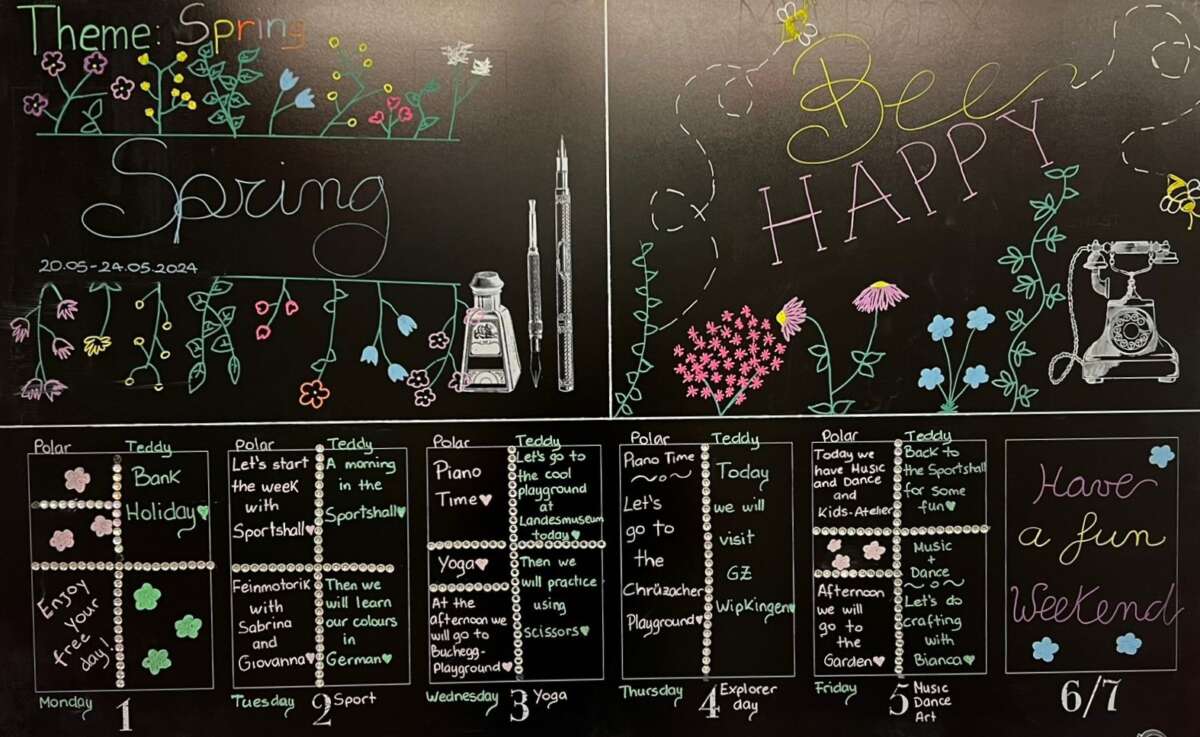 Theme: Spring
Spring
20.05-24.05.2024
Bee
HAPPY
Polar
Teddy
Bank
Holiday
Enjoy
your
free
day!
Monday
1
Polar
Teddy
Let's start
the week
with
Sportshall
A morning
in the
Sportshall
Feinmotorik
with
Sabrina
and
Giovanna
Then we
will learn
our colours
in
German
Tuesday
2
Sport
Polar
Teddy
Piano
Time
Let's go to
the cool
playground
at
Landesmuseum
today
Yoga
At the
afternoon we
will go to
Buchegg-
Playground
Then we
will practice
using
scissors
Wednesday
3
Yoga
Polar
Teddy
Piano Time
Let's
go to
the
Chrüzacher
Playground
Today
we will
visit
GZ
Wipkingen
Thursday
4
Explorer
day
Polar
Teddy
Today we
have Music
and Dance
and
Kids-Atelier
Back to
the Sportshall
for some
fun
Afternoon
we will
go to
the
Garden
Music
+
Dance
Let's do
crafting
with
Bianca
Friday
5
Music
Dance
Art
Have
a fun
Weekend
6/7